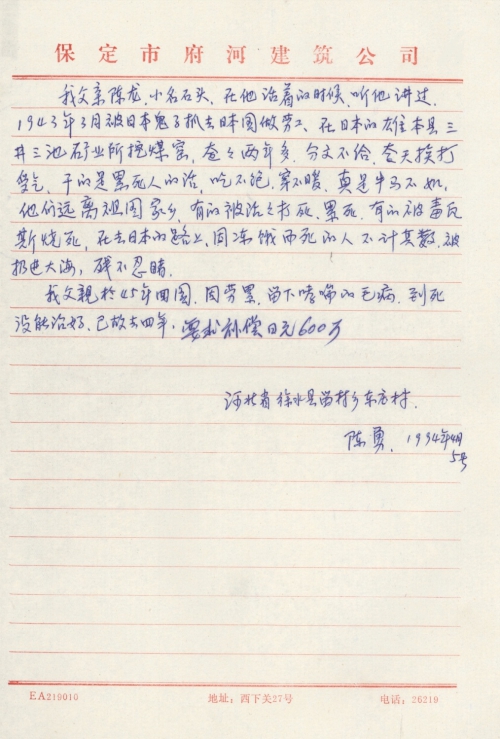 保定市府河建筑公司
我父亲陈龙，小名石头，在他活着的时候，听他讲过，
1943年3月被日本鬼子抓去日本国做劳工，在日本的雄本县三
井三池矿业所挖煤窑，苍々两年多，分文不给，苍天挨打
受气，干的是累死人的活，吃不饱，穿不暖，真是牛马不如，
他们远离祖国家乡，有的被活々打死、累死，有的被毒瓦
斯烧死，在去日本的路上，因冻饿而死的人不计其数，被
扔进大海，残不忍睹。
我父親於45年回国，因劳累，留下哮喘的毛病，到死
没能治好，已故去四年，要求补偿日元600万
河北省徐水县留村乡东方村，
陈勇，1994年4月
5号
EA219010 地址：西下关27号 电话：26219